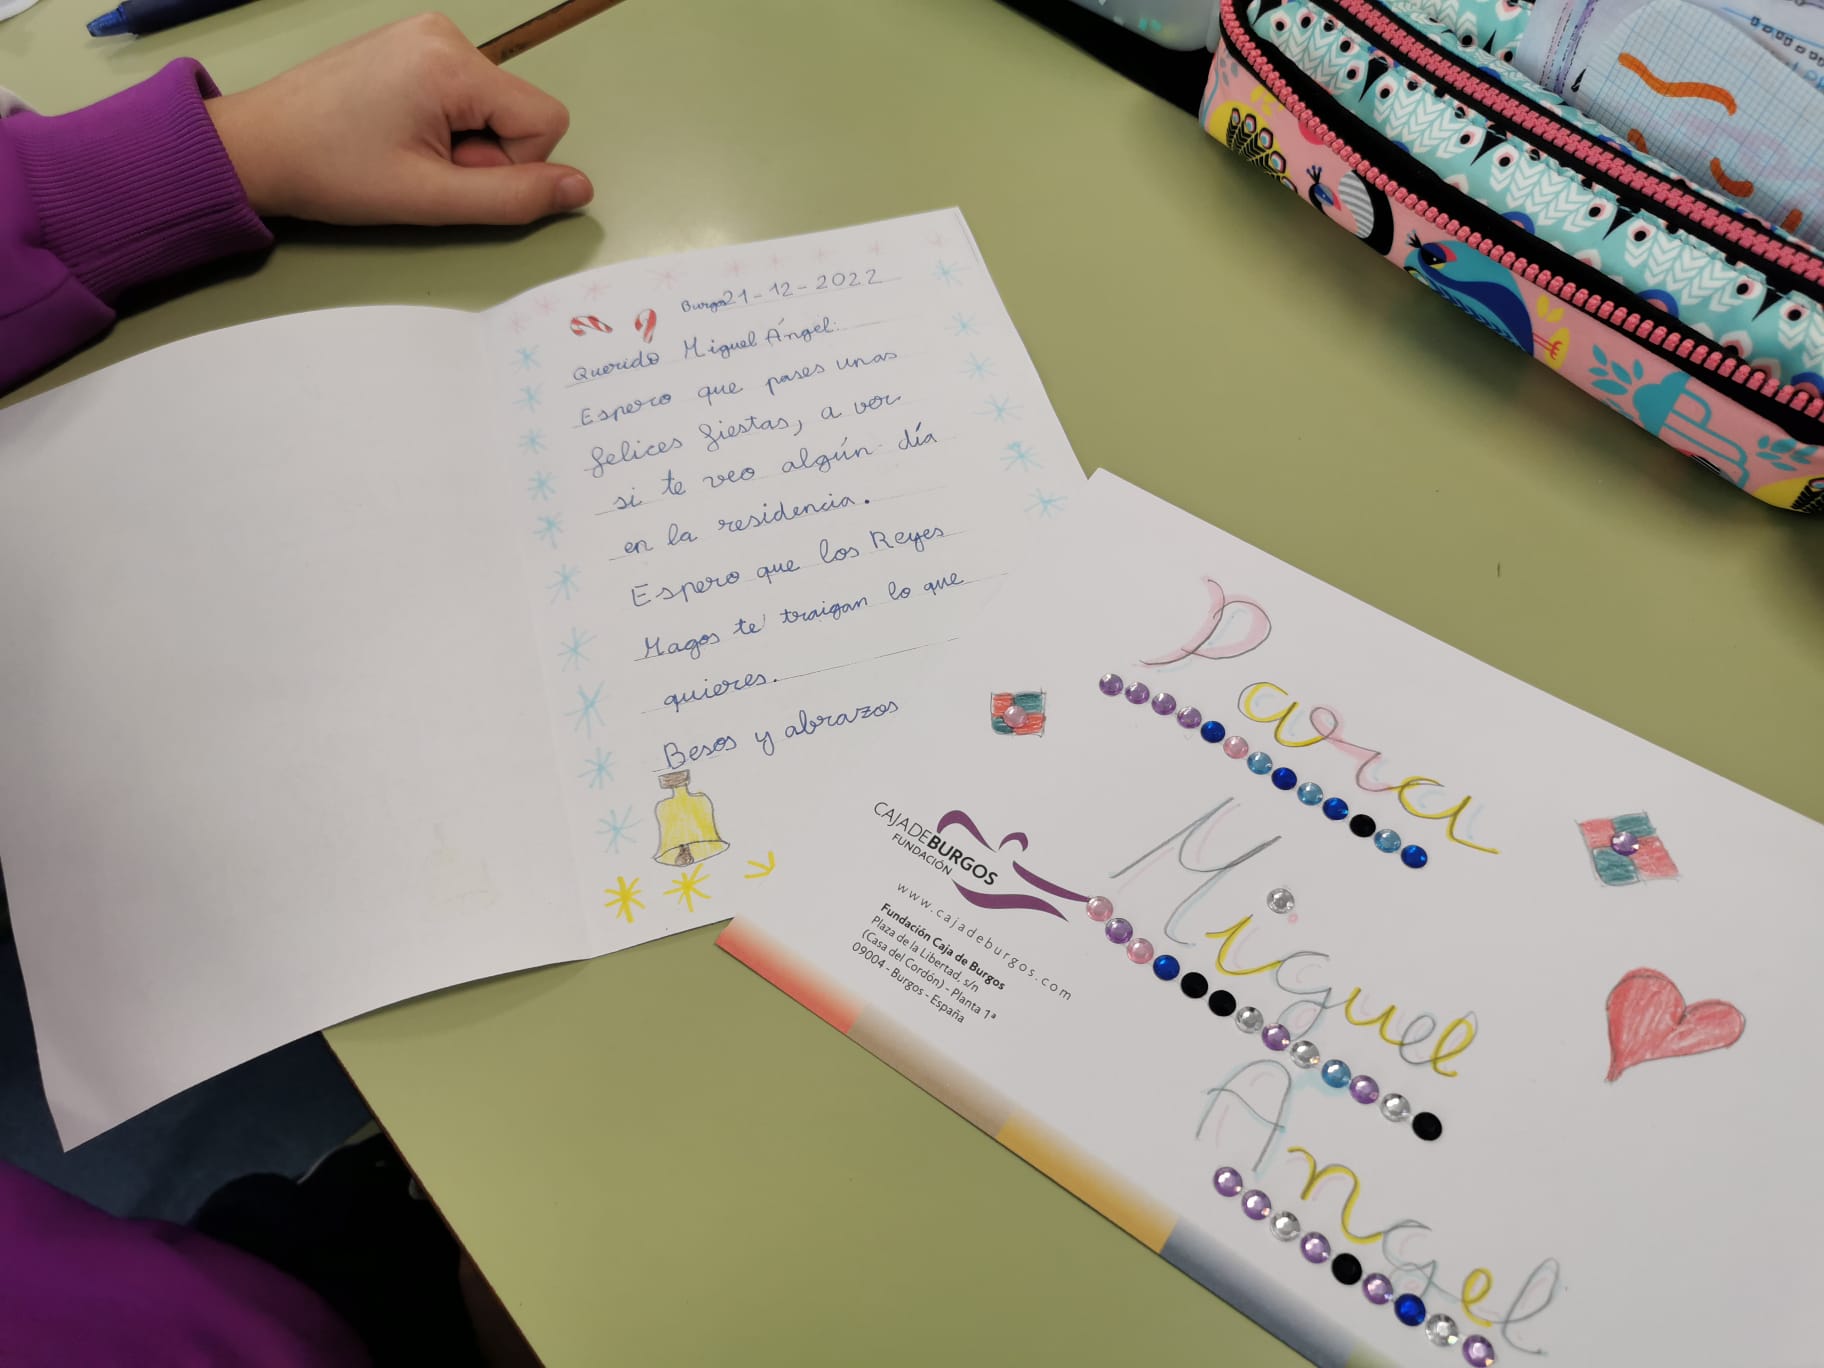 Burgos 21-12-2022
Querido Miguel Ángel:
Espero que pases unas
felices fiestas, a ver
si te veo algún día
en la residencia.
Espero que los Reyes
Magos te traigan lo que
quieres.
Besos y abrazos
Para
Miguel
Angel
CAJADEBURGOS
FUNDACIÓN
www.cajadeburgos.com
Fundación Caja de Burgos
Plaza de la Libertad, s/n
(Casa del Cordón) - Planta 1ª
09004 - Burgos - España